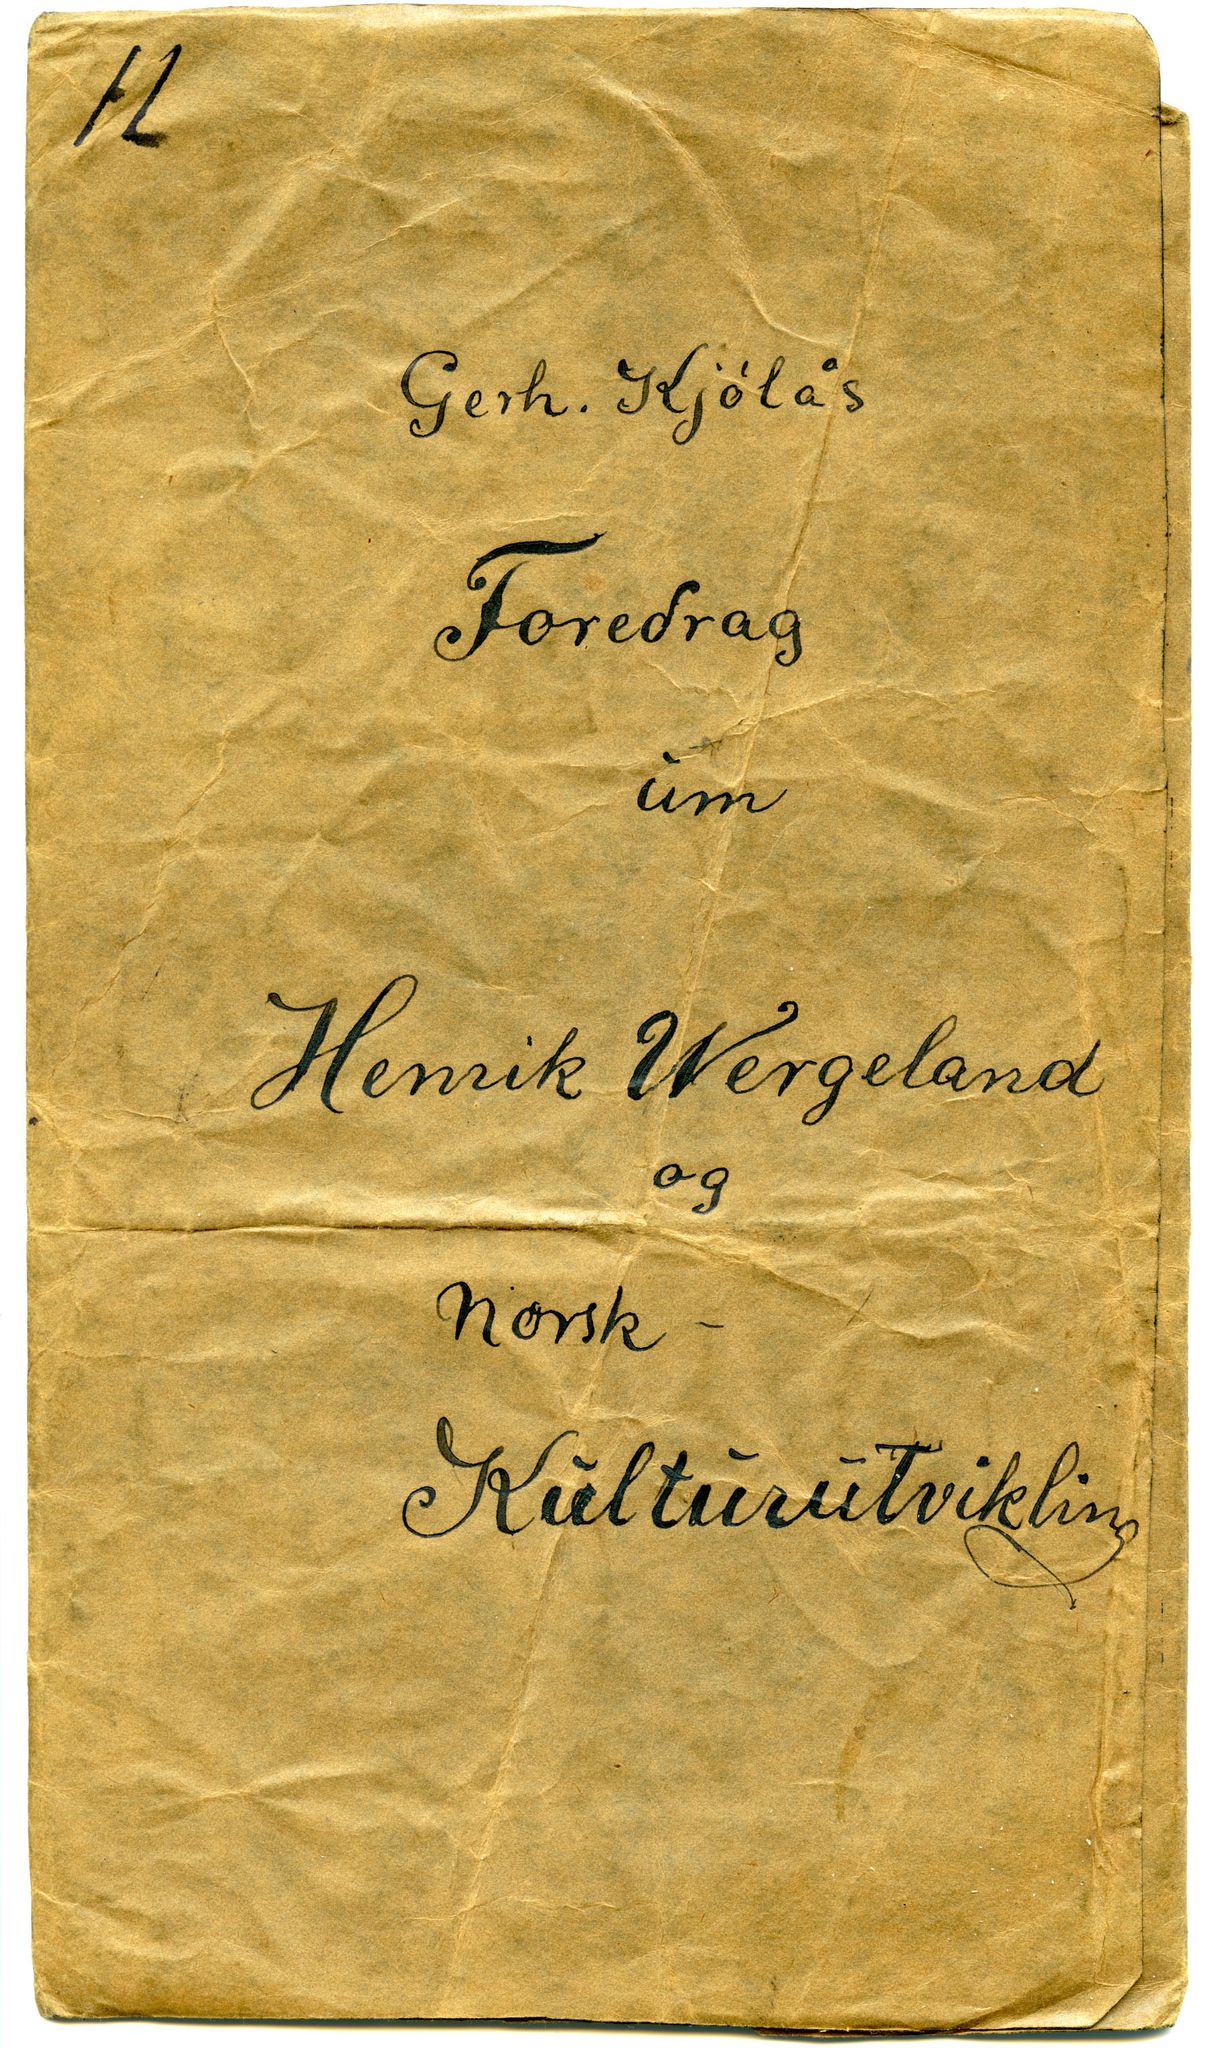 H
Gerh. Kjólås
Foredrag
um
Henrik Wergeland
og
Norsk -
Kulturutvikling